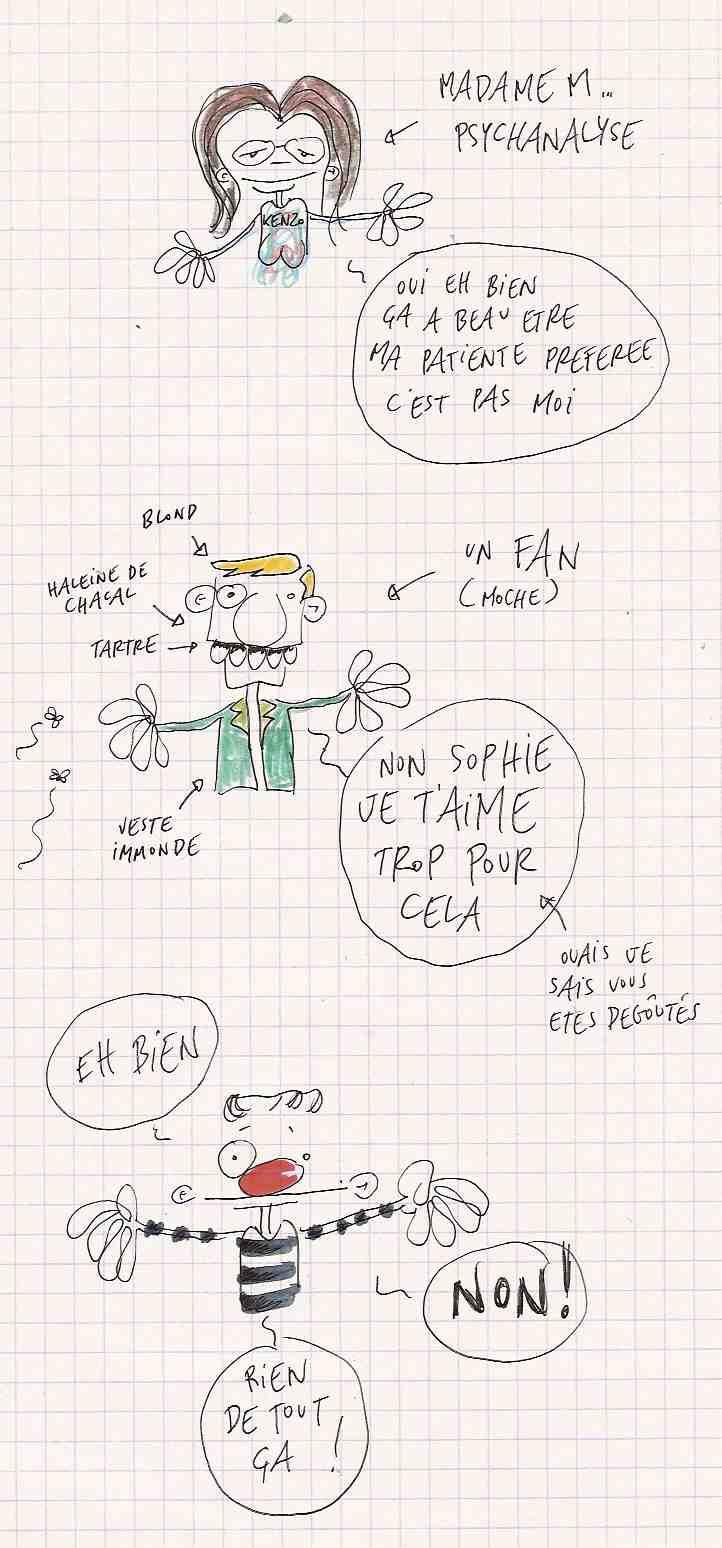 MADAME M...
PSYCHANALYSE
KENZO
OUI EH BIEN
ÇA A BEAU ETRE
MA PATIENTE PREFEREE
C'EST PAS MOI
BLOND
UN FAN
(MOCHE)
HALEINE DE
CHACAL
TARTRE
NON SOPHIE
JE T'AIME
TROP POUR
CELA
VESTE
IMMONDE
OUAIS JE
SAIS VOUS
ETES DEGOÛTÉS
EH BIEN
NON!
RIEN
DE TOUT
ÇA !